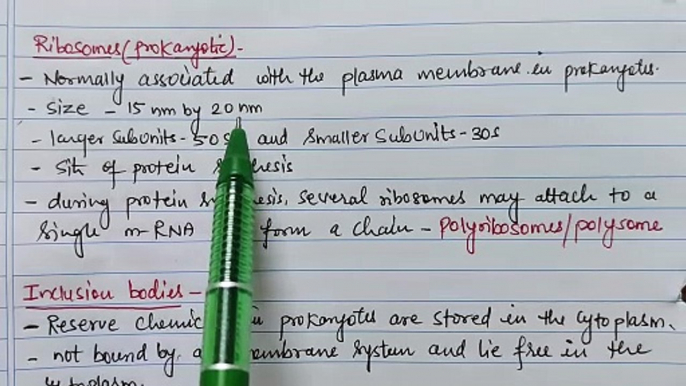 Ribosomes (prokaryotic) -
- Normally associated with the plasma membrane in prokaryotes.
- Size - 15 nm by 20 nm
- larger Subunits - 50S and smaller Subunits - 30S
- Site of protein
- during protein several ribosomes may attach to a
single m-RNA form a chain - Polyribosomes/polysome
Inclusion bodies -
- Reserve prokaryotes are stored in the cytoplasm.
- not bound by membrane system and lie free in the